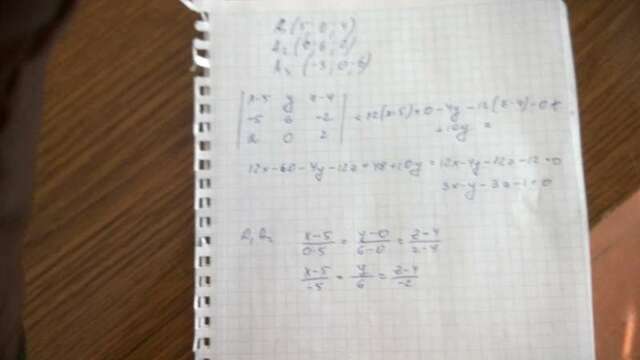 A₁(5; 0; 4)
A₂(0; 6; 2)
| x-5 y z-4 |
| -5 6 -2 | = 12(x-5)+0-4y-12(z-4)-0+
| 2 0 2 | +10y =
12x-60-4y-12z+48+10y = 12x-4y-12z-12=0
3x-y-3z-1=0
x-5/0-5 = y-0/6-0 = z-4/2-4
x-5/-5 = y/6 = z-4/-2